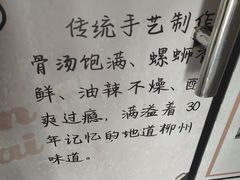 传统手艺制作
骨汤饱满、螺蛳
鲜、油辣不燥、
爽过瘾，满溢着30
年记忆的地道柳州
味道。